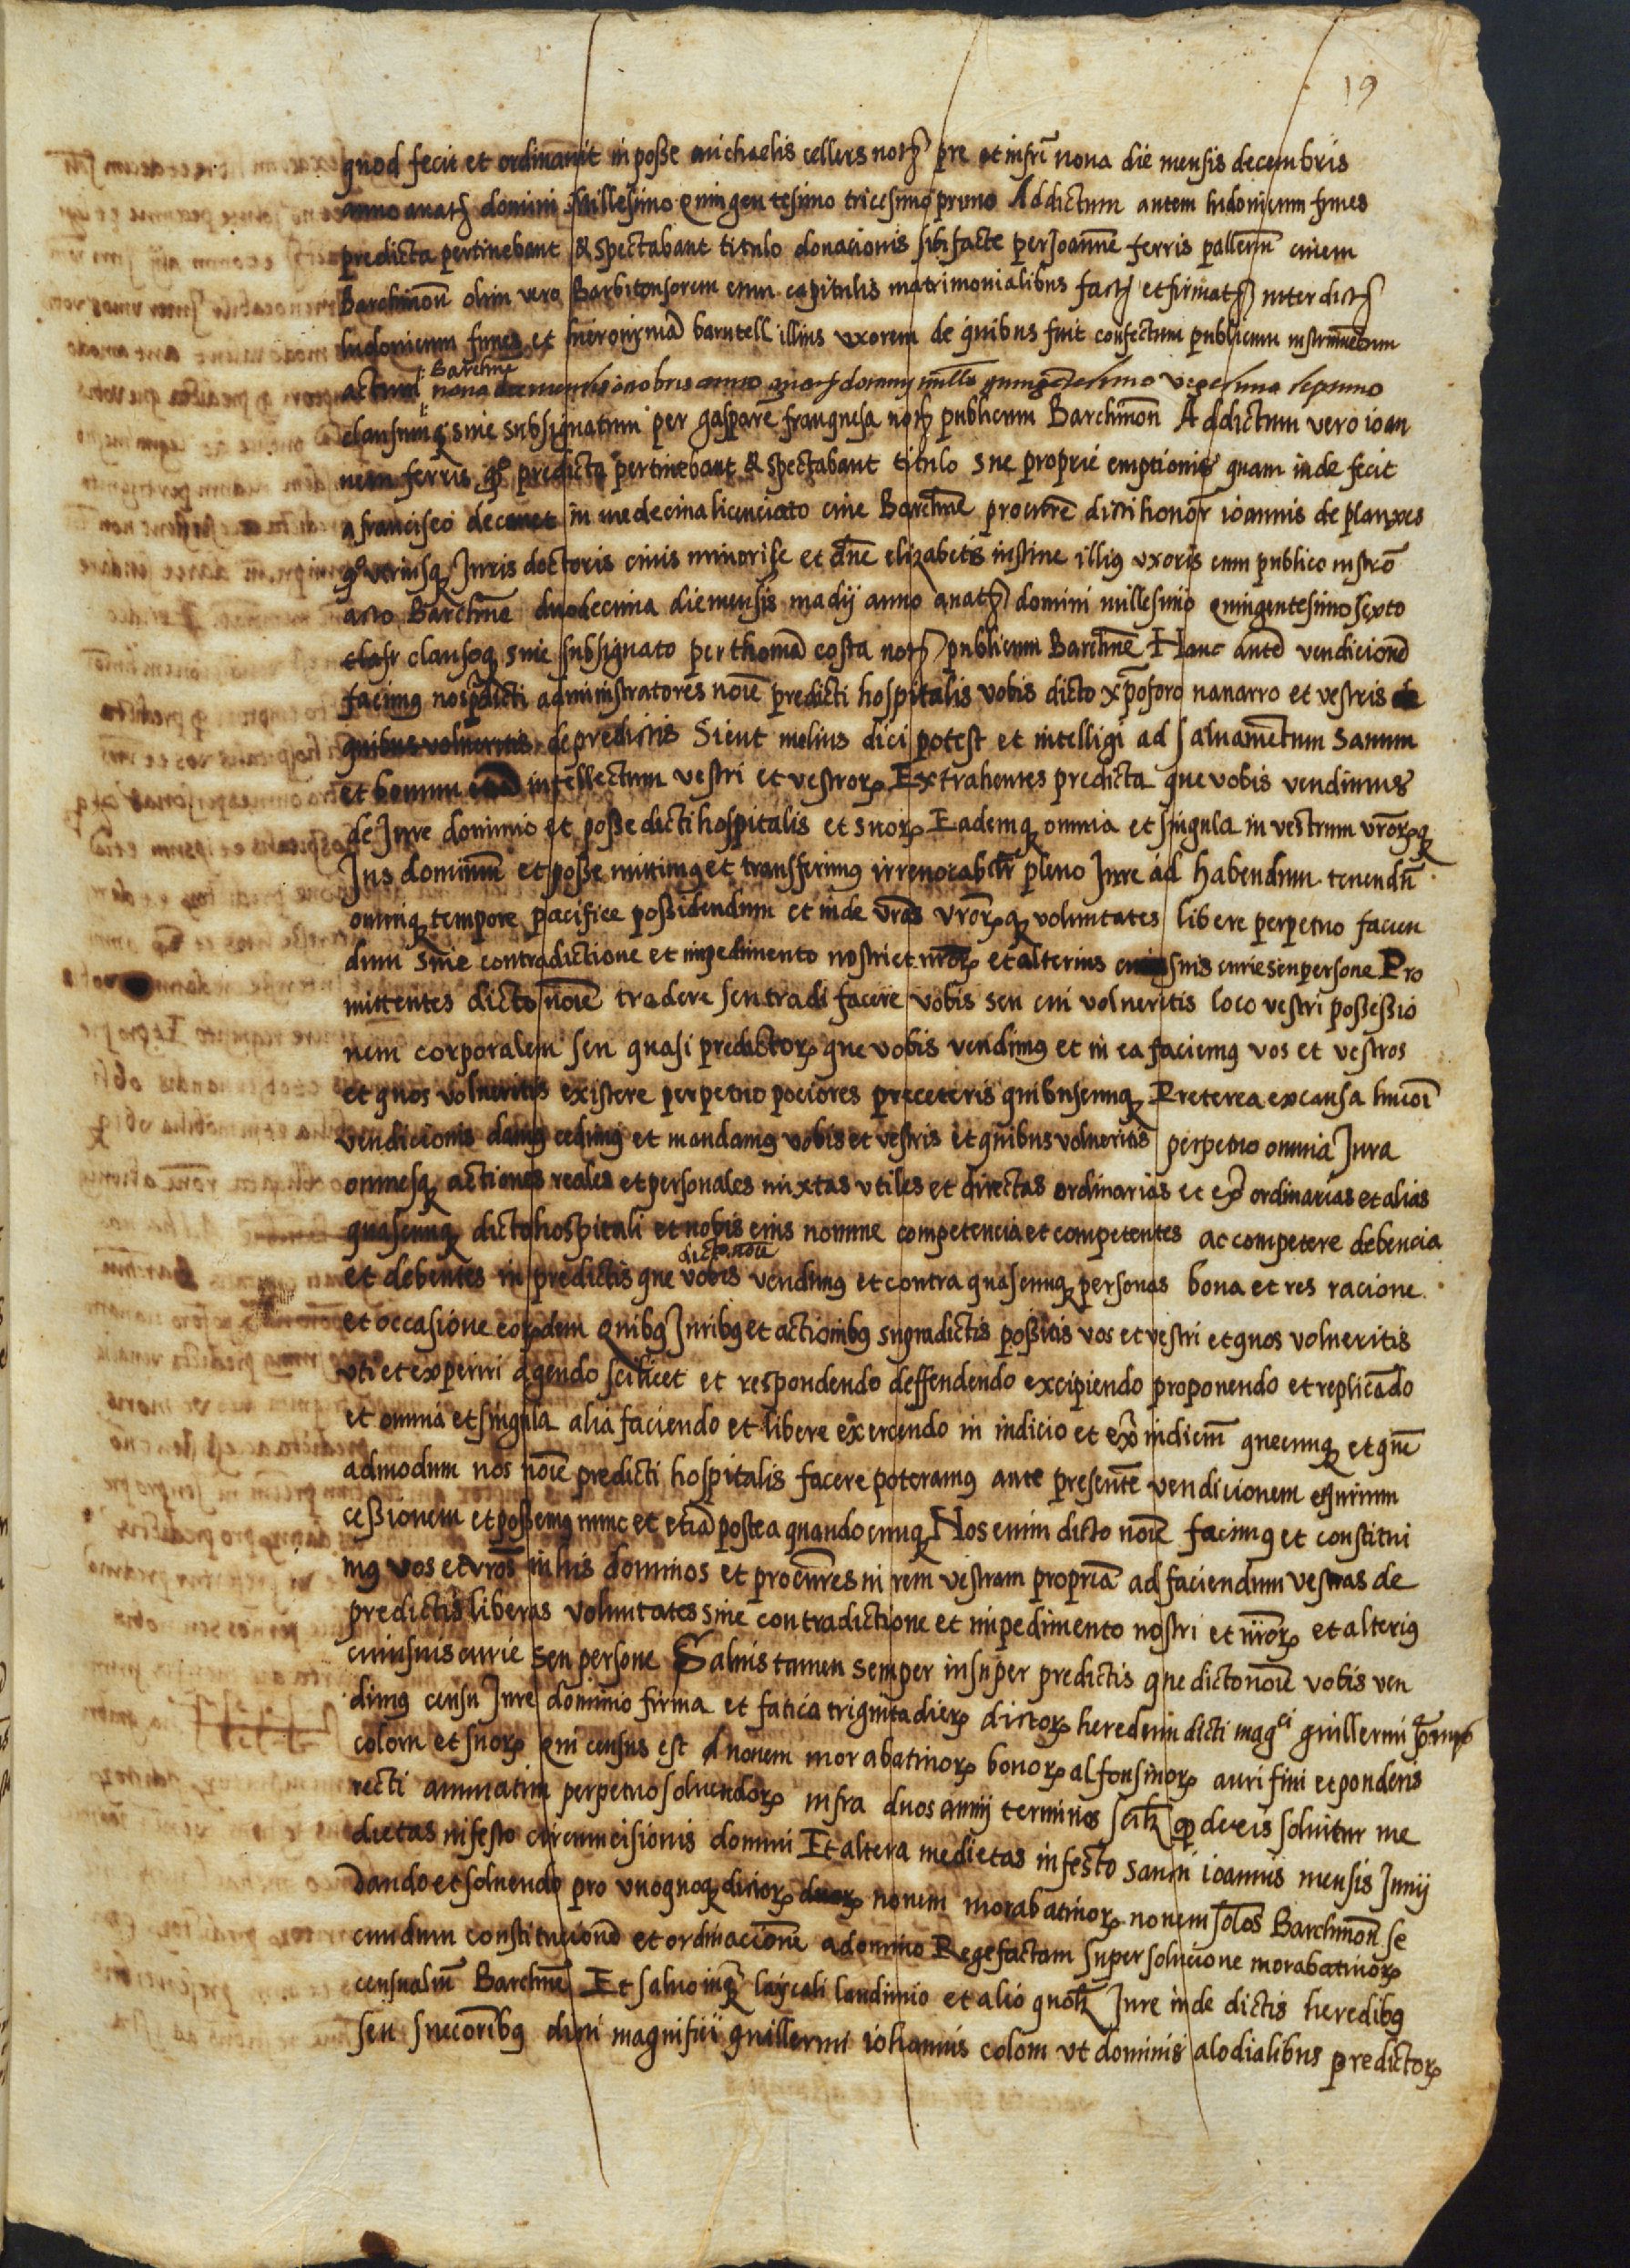 19
quod fecit et ordinavit in posse michaelis cellers notꝫ pre et infrī nona die mensis decembris
anno a natꝫ domini Millesimo quingentesimo tricesimo primo Ad dictum autem ludovicum funes
predicta pertinebant & spectabant titulo donacionis sibi facte per Joannē ferris pallerū civem
Barchinoñ olim vero Barbitonsorem cum capitulis matrimonialibus factꝫ et firmatꝫ inter dictꝫ
ludovicum funes et hieronymā barutell illius uxorem de quibus fuit confectum publicum instrumētum
actum Barchne nona die mensis anno a natꝫ domini millo quingētesimo vigesimo septimo
clausumqꝫ sive subsignatum per gasparē franquesa notꝫ publicum Barchinoñ Ad dictum vero ioan
nem ferris qº predicta pertinebant & spectabant titulo sue proprie emptionis quam inde fecit
a francisco de canet in medecina licenciato cive Barchne procurē dicti honor ioannis de planxes
qº utriusqꝫ Juris doctoris civis minorise et dn̄e elizabetis iustine illiꝰ uxoris cum publico instrō
acto Barchne duodecima die mensis madij anno a natꝫ domini millesimo quingentesimo sexto
clasr clausoqꝫ sive subsignato per thomā costa notꝫ publicum Barchne Hanc autē vendicionē
facimꝰ nos p̄dicti administratores noīe predicti hospitalis vobis dicto xp̄oforo navarro et vestris de
quibus volueritis de predictis Sicut melius dici potest et intelligi ad salvamētum sanum
et bonum intellectum vestri et vestrorꝝ Extrahentes predicta que vobis vendimus
de Jure dominio et posse dicti hospitalis et suorꝝ Eademqꝫ omnia et singula in vestrum vrōrꝝqꝫ
Jus dominiū et posse mitimꝰ et transferimꝰ irrevocablr pleno Jure ad habendum tenendū
omniqꝫ tempore pacifice possidendum et inde vrās vrōrꝝqꝫ voluntates libere perpetuo facien
dum sine contradictione et impedimento nostri et nrōrꝝ et alterius cuiusvis curie seu persone Pro
mittentes dicto noīe tradere seu tradi facere vobis seu cui volueritis loco vestri possessio
nem corporalem seu quasi predictorꝝ que vobis vendimꝰ et in ea faciemꝰ vos et vestros
et quos volueritis existere perpetuo pociores preceteris quibuscumqꝫ Preterea ex causa huiōi
vendicionis damꝰ cedimꝰ et mandamꝰ vobis et vestris et quibus volueritis perpetuo omnia Jura
omnesqꝫ actiones reales et personales mixtas utiles et directas ordinarias et ex̄ ordinarias et alias
quascumqꝫ dicto hospitali et nobis eius nomine competencia et competentes ac competere debencia
et debentes in predictis que dicto noīe vobis vendimꝰ et contra quascumqꝫ personas bona et res racione
et occasione eorꝝdem Quibꝰ Juribꝰ et actionibꝰ supradictis possitis vos et vestri et quos volueritis
uti et experiri agendo scilicet et respondendo deffendendo excipiendo proponendo et replicādo
et omnia et singula alia faciendo et libere exercendo in iudicio et ex̄ iudiciū quecumqꝫ et quē
admodum nos noīe predicti hospitalis facere poteramꝰ ante presentē vendicionem et Jurium
cessionem et possemꝰ nunc et etiā postea quandocumqꝫ Nos enim dicto noīe facimꝰ et constitui
mꝰ vos et vrōs in his dominos et procurēs in rem vestram propriā ad faciendum vestras de
predictis liberas voluntates sine contradictione et impedimento nostri et nrōrꝝ et alteriꝰ
cuiusvis curie seu persone Salvis tamen semper in super predictis que dicto noīe vobis ven
dimꝰ censu Jure dominio firma et fatica triginta dierꝝ dictorꝝ heredum dicti magci guillermi
colom et suorꝝ Qui census est novem morabatinorꝝ bonorꝝ alfonsinorꝝ auri fini et ponderis
recti annuatim perpetuo solvendorꝝ infra duos anni terminos scilꝫ qꝫ de eis solvitur me
dietas in festo circumcisionis domini Et altera medietas in festo sancti ioannis mensis Junij
Dando et solvendo pro unoquoqꝫ dictorꝝ duorꝝ novem morabatinorꝝ novem solōs Barchinoñ se
cundum constitucionē et ordinacionē a domino Rege factam super solucione morabatinorꝝ
censualiū Barchne Et salvo iurꝫ laycali laudimio et alio quolꝫ Jure inde dictis heredibꝰ
seu succoribꝰ dicti magnifici guillermi iohannis colom ut dominis alodialibus predictorꝝ